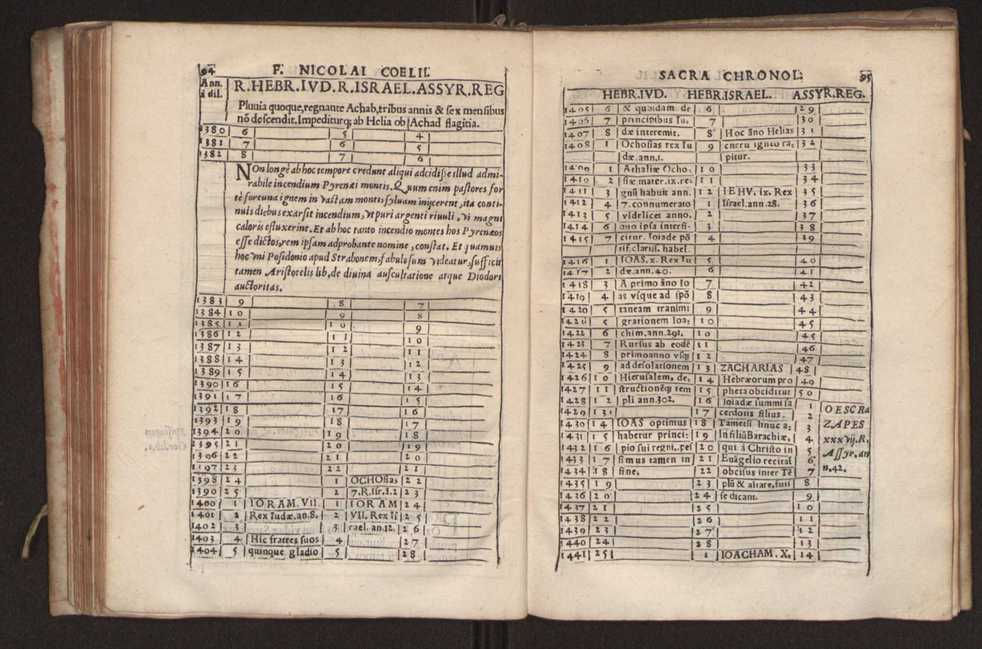 94 F. NICOLAI COELII.
Ann. R. HEBR. IVD. R. ISRAEL. ASSYR. REG
á dil.
Pluuia quoque, regnante Achab, tribus annis & sex mensibus
nõ descendit, Impediturq; ab Helia ob Achad flagitia.
1380 6 5 4
1381 7 6 5
1382 8 7 6
NOn longè ab hoc tempore credunt aliqui adcidisse illud admi-
rabile incendium Pyrenæi montis. Quum enim pastores for
tè fortuna ignem in vastam montis syluam inijcerent, ita conti-
nuis diebus exarsit incendium, vt puri argenti riuuli, vi magni
caloris efluxerint. Et ab hoc tanto incendio montes hos Pyrenæos
esse dictos, rem ipsam adprobante nomine, constat. Et quamuis
hoc vni Posidonio apud Strabonem, fabulosum videatur, sufficit
tamen Aristotelis lib. de diuina auscultatione atque Diodori
auctoritas.
1383 9 8 7
1384 10 9 8
1385 11 10 9
1386 12 11 10
1387 13 12 11
1388 14 13 12
1389 15 14 13
1390 16 15 14
1391 17 16 15
1392 18 17 16
1393 19 18 17
1394 20 19 18
1395 21 20 19
1396 22 21 20
1397 23 22 21
1398 24 1 OCHOsias 22
1399 25 2 7.R.Isr.1.2 23
1400 1 IORAM. VII 1 IORAM 24
1401 2 Rex Iudæ.an.8. 2 VII. Rex Is 25
1402 3 3 rael.an.12. 26
1403 4 Hic fratres suos 4 27
1404 5 quinque gladio 5 28
SACRA CHRONOL: 95
HEBR. IVD. HEBR. ISRAEL. ASSYR. REG.
1405 6 & quosdam de 6 29
1406 7 principibus Iu. 7 30
1407 8 dæ interemit. 8 Hoc ãno Helias 31
1408 1 Ochosias rex Iu 9 curru ignito ra, 32
dæ. ann.1. pitur.
1409 1 Athaliæ Ocho, 10 33
1410 2 siæ mater.ix.re, 11 34
1411 3 gnũ habuit ann. 12 IEHV. ix. Rex 35
1412 4 7. connumerato 1 Israel.ann.28. 36
1413 5 videlicet anno. 2 37
1414 6 quo ipsa interfi- 3 38
1415 7 citur. Ioiade põ 4 39
tif. clariss. habet.
1416 1 IOAS. x. Rex Iu 5 40
1417 2 dæ.ann.40. 6 41
1418 3 A primo ãno Io 7 42
1419 4 as vsque ad spõ 8 43
1420 5 taneam tranimi 9 44
1420 5 grationem Ioa, 10 45
1422 6 chim.ann.291. 10
1423 7 Rursus ab eodẽ 11 46
1424 8 primoanno vsq; 12 47
1425 9 ad desolationem 13 ZACHARIAS 48
1426 10 Hierusalem, de, 14 Hebræorum pro 49
1427 11 structionẽq; tem 15 pheta obeiditur 50
1428 12 pli ann.302. 16 Ioiadæ summi sa 1 OESCRA
1429 13 17 cerdotis filius. 2
1430 14 IOAS optimus 18 Tametsi hunc a; 3 ZAPES
1431 15 habetur princi: 19 In filiũ Barachiæ, 4 xxxvij. R.
1432 16 pio sui regni, pes 20 qui à Christo in 5 Assyr. an
1433 17 simus tamen in 21 Euãgelio recitat 6 n. 42.
1434 18 fine. 22 obcisus inter Tẽ 7
1435 19 23 plũ & altare, fuis 8
1436 20 24 se dicam. 9
1437 21 25 10
1438 22 26 11
1439 23 27 12
1440 24 28 13
1441 25 1 IOACHAM. X. 14